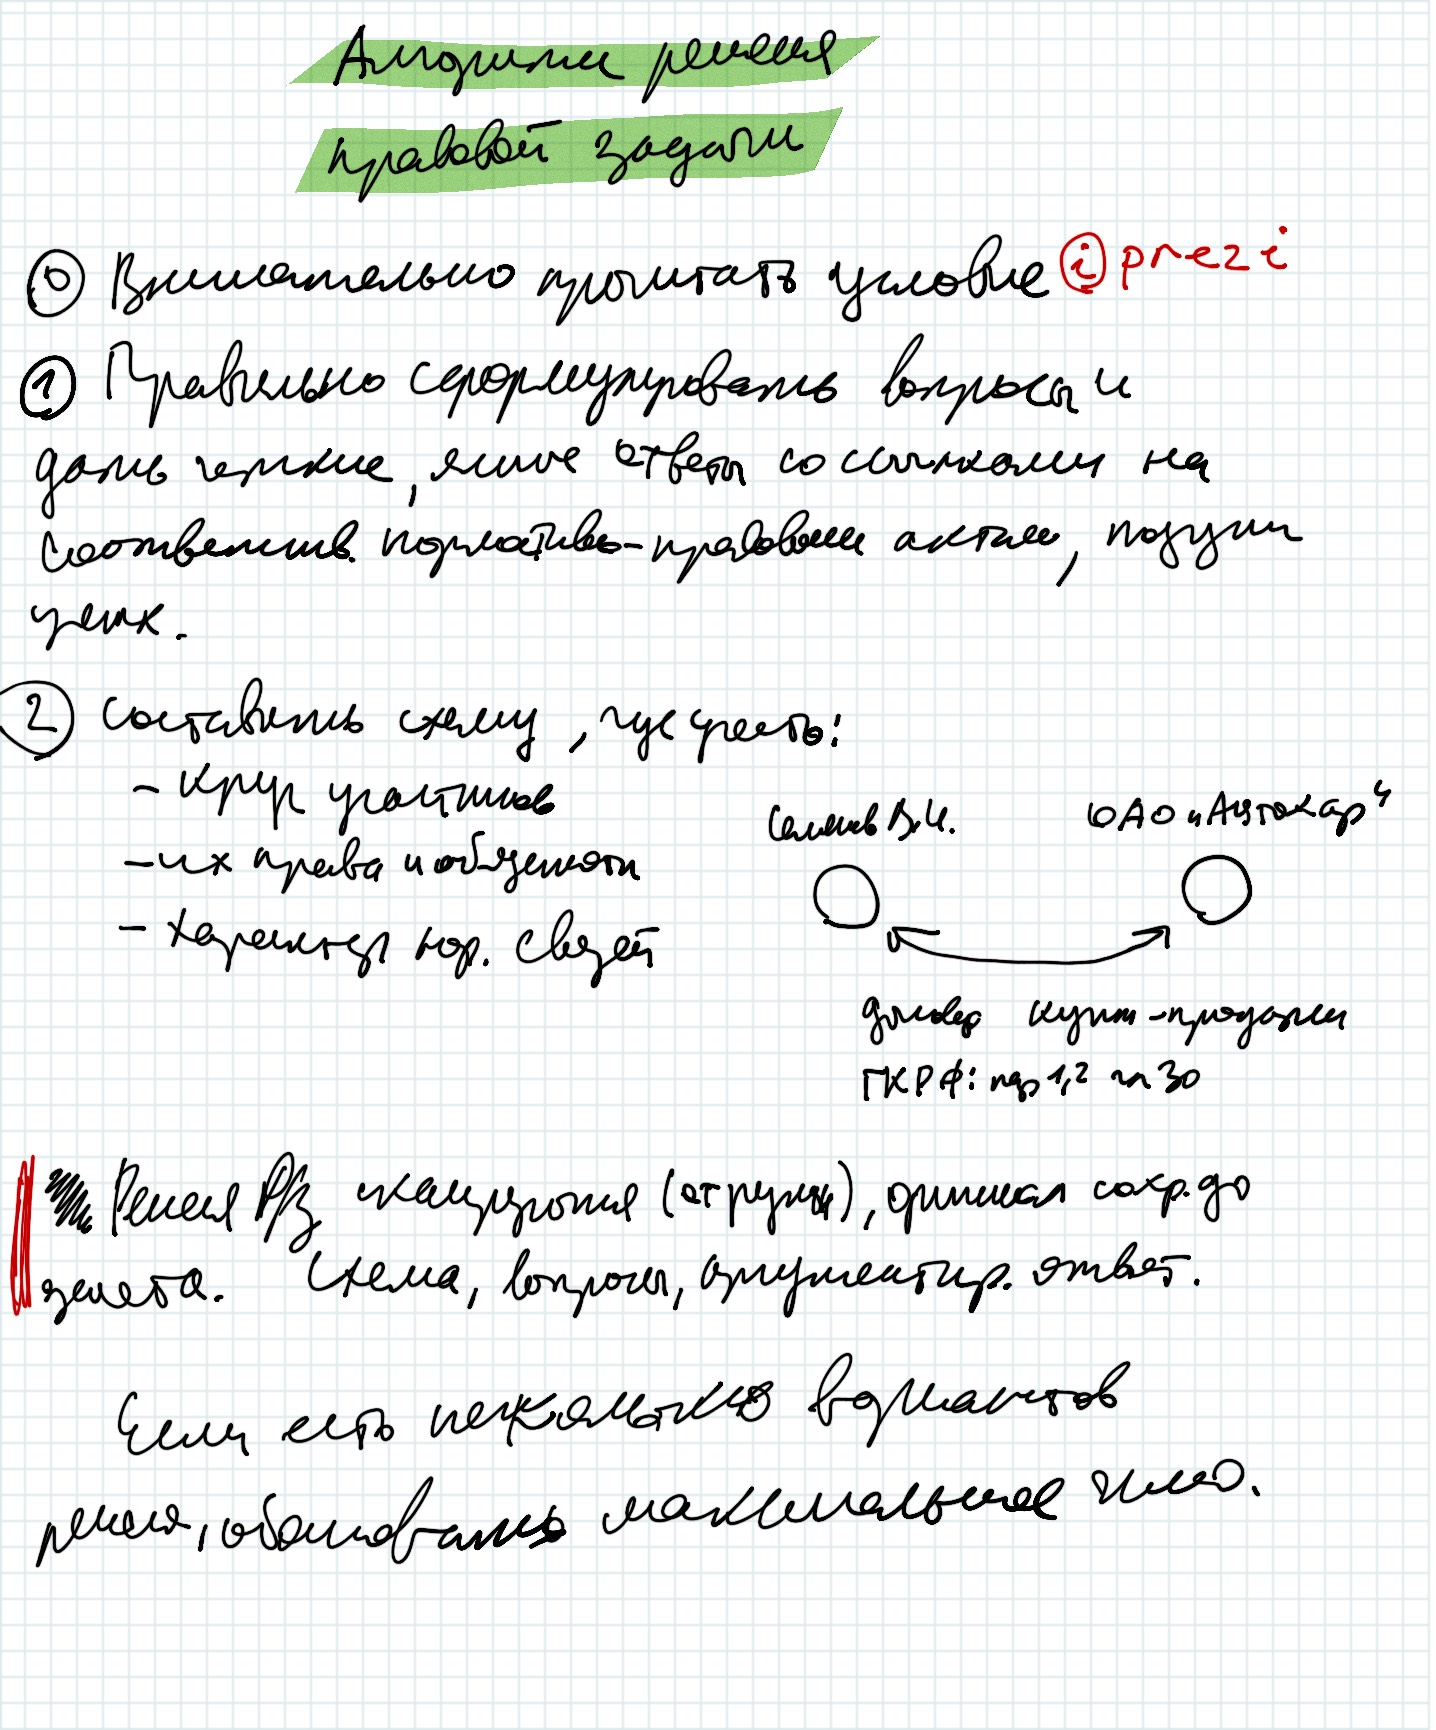 Алгоритм решения
правовой задачи
0 Внимательно прочитать условие i prezi
1 Правильно сформулировать вопросы и
дать четкие, ясные ответы со ссылками на
соответств. нормативно-правовые акты, позиции
2 Составить схему, где учесть:
- круг участников
- их права и обязанности
- характер юр. связей
В.И. ОАО "Автокар"
договор купли-продажи
ГК РФ: пар 1,2 гл 30
Решения (от руки), оригинал сохр. до
зачета. Схема, вопросы, аргументир. ответ.
Если есть несколько вариантов
решения, обосновать максимальное число.